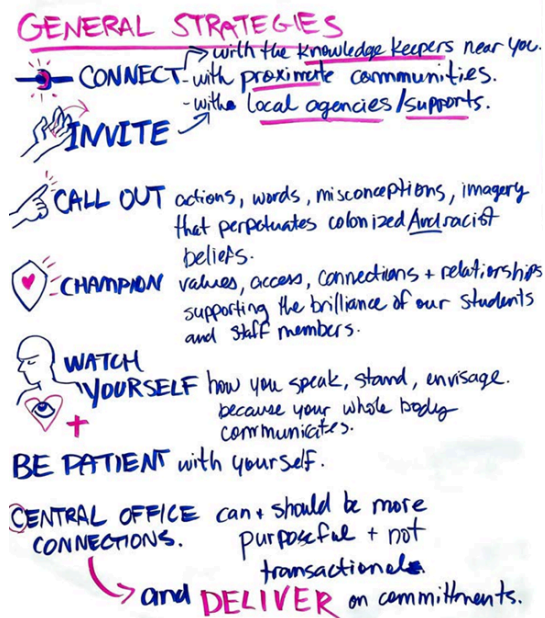 GENERAL STRATEGIES
with the Knowledge Keepers near you.
CONNECT - with proximate communities.
- withe local agencies/supports.
INVITE
CALL OUT actions, words, misconceptions, imagery
that perpetuates colonized And racist
beliefs.
CHAMPION values, access, connections + relationships
supporting the brilliance of our students
and staff members.
WATCH
YOURSELF how you speak, stand, envisage.
because your whole body
communicates.
+
BE PATIENT with yourself.
CENTRAL OFFICE can + should be more
CONNECTIONS. purposeful + not
transactional.
and DELIVER on committments.